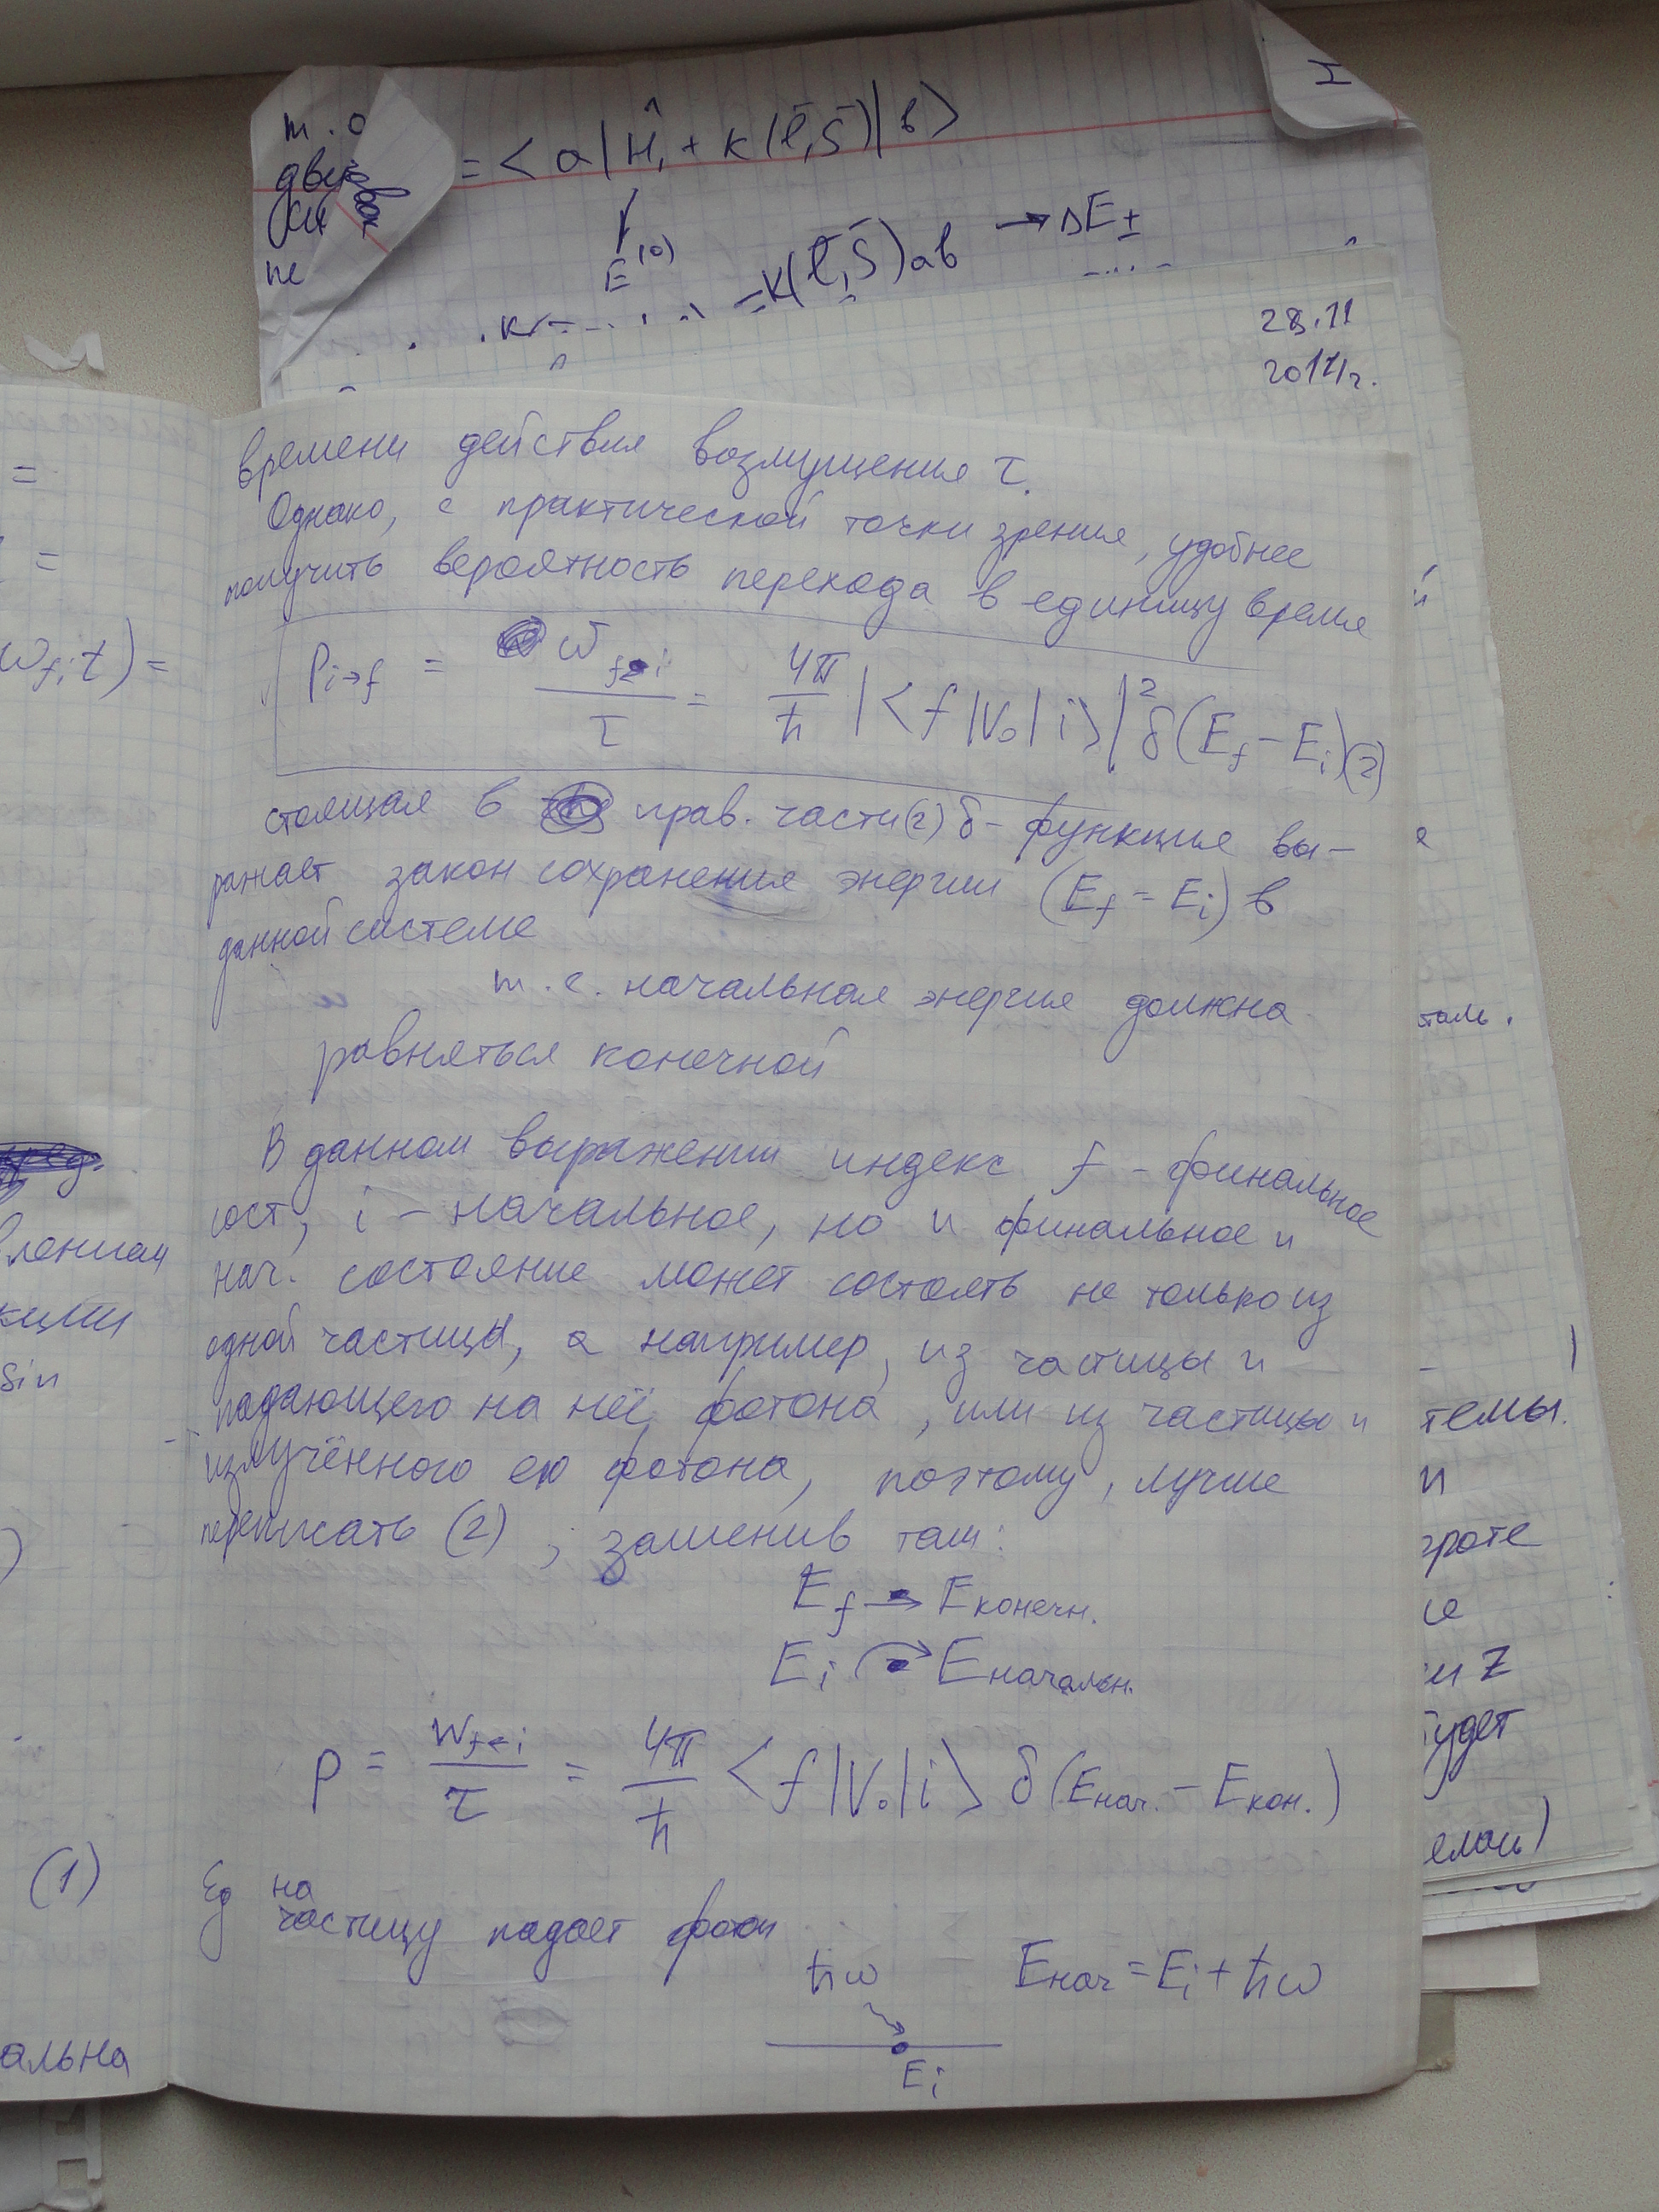 т.о
дву
си
пе
= < a | Ĥ₁ + K(l̄,S̄) | b >
E⁽⁰⁾
= K(l̄,S̄)ab → ΔE±
28.11
2017г.
времени действия возмущения τ.
Однако, с практической точки зрения, удобнее
получить вероятность перехода в единицу время
P i→f = W f←i / τ = 4π/ħ |<f|V₀|i>|² δ(E_f − E_i) (2)
стоящая в прав. части (2) δ-функция вы-
ражает закон сохранения энергии (E_f = E_i) в
данной системе
т.е. начальная энергия должна
равняться конечной
В данном выражении индекс f - финальное
сост, i - начальное, но и финальное и
нач. состояние может состоять не только из
одной частицы, а например, из частицы и
падающего на неё фотона, или из частицы и
излучённого ею фотона, поэтому, лучше
переписать (2), заменив там:
E_f → E конечн.
E_i → E начальн.
P = W f←i / τ = 4π/ħ <f|V₀|i> δ(E нач. − E кон.)
на
частицу падает фотон
ħω E нач = E_i + ħω
E_i
=
=
ω_fi t) =
sin
(1)
альна
таль.
темы.
и
роте
и Z
будет